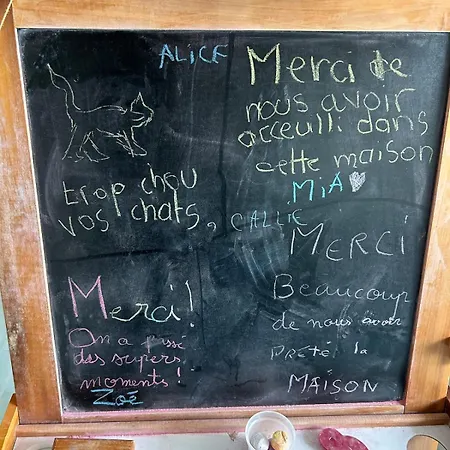 ALICE
Merci de
nous avoir
acceulli dans
cette maison
MiA
trop chou
vos chats,
CALLIE
MERCi
Beaucoup
de nous avoir
PRêTé la
MAiSON
Merci!
On a passé
des supers
moments!
Zoé